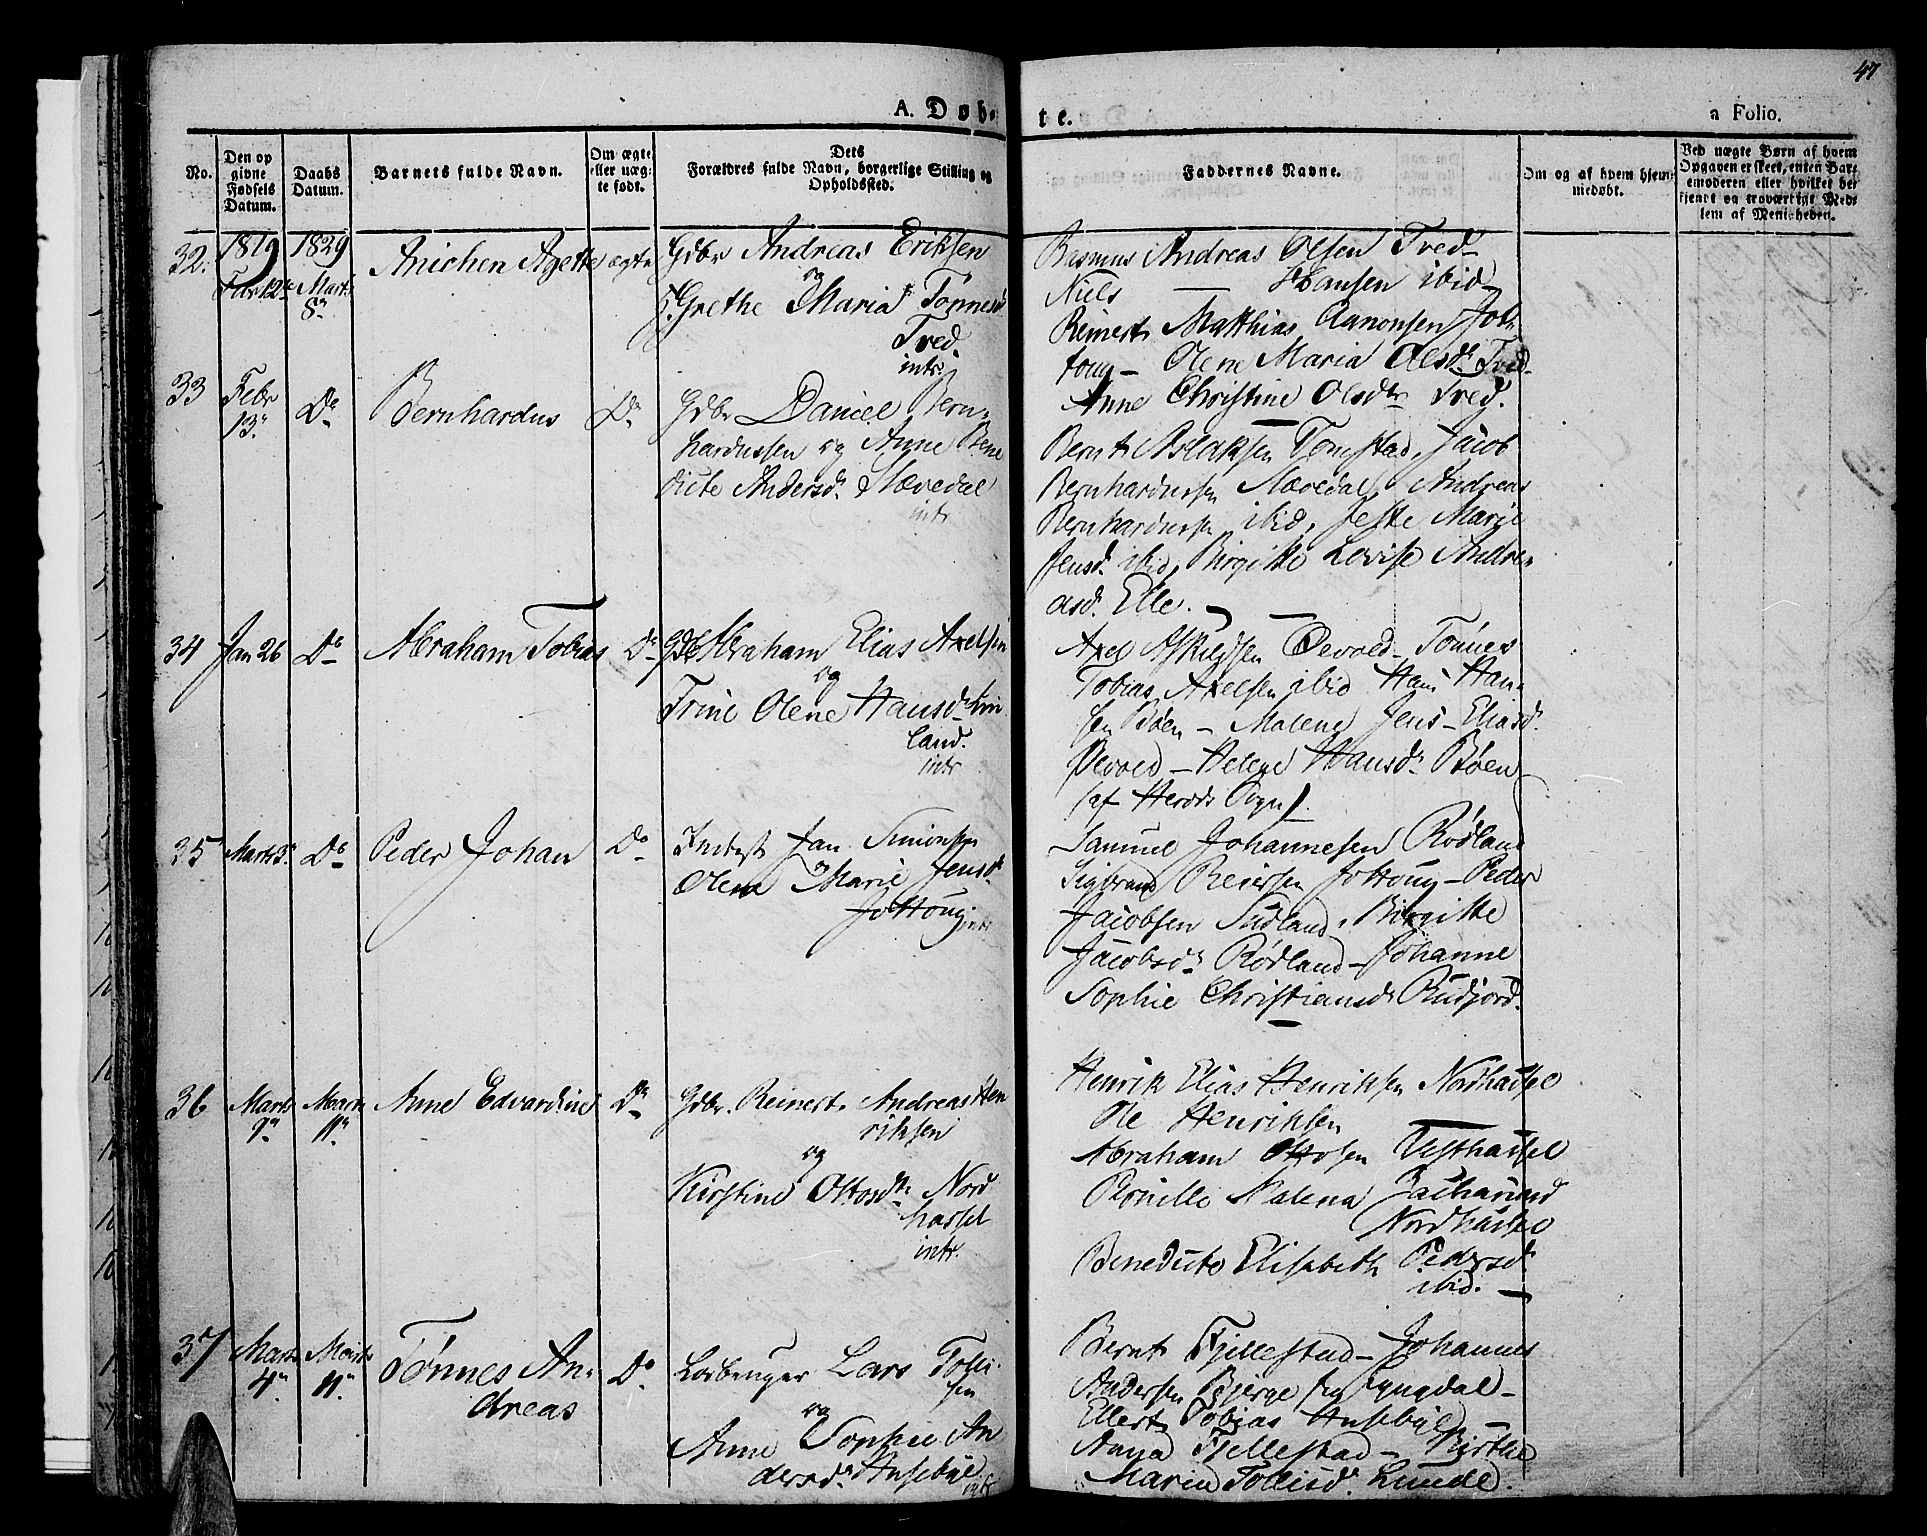 47
A. Døb-
te.
a Folio.
No.
Den op
givne
Fødsels
Datum.
Daabs
Datum.
Barnets fulde Navn.
Om ægte
eller uæg-
te født.
Dets
Forældres fulde Navn, borgerlige Stilling og
Opholdssted.
Faddernes Navne.
Om og af hvem hjem-
medøbt.
Ved uægte Børn af hvem
Opgaven er skeet, enten Bar-
nemoderen eller hvilket be-
kjendt og troværdigt Med-
lem af Menigheden.
32.
1819
1829
Marts
8de
Anichen Agette
ægte
Gdbr Andreas Eriksen
og
Grethe Maria Tønnesd
Tved
intr.
Rasmus Andreas Olsen Tved
Niels — Hansen ibid
Reinert Matthias Aanonsen Jøl
toug — Olene Maria Olsdr. Tved
Anne Christine Olsdtr Tved.
33
Febr
13.
Do
Bernhardus
Do
Gdbr Daniel Bern-
hardussen og Anne Bene
dicte Andersd. Slævedal
intr
Bernt Aslaksen Tomstad, Jacob
Bernhardussen Slævedal, Andreas
Bernhardussen ibid, Jeste Marie
Jensd. ibid, Birgitte Lovise Andre-
asd. Elle.
34
Jan 26
Do
Abraham Tobias
Do
Gdbr Abraham Elias Axelsen
og
Trine Olene Hansd.
land.
intr
Axel Askildsen Øevold — Tønnes
Tobias Axelsen ibid Hans Han-
sen Bøen — Malene Jens-Eliasd.
Øevold — Helene Hansd. Bøen
(af Herods Sogn).
35
Marts 3.
Do
Peder Johan
Do
Inderst Jan Simonsen
og
Olene Marie Jensd.
Jøltoug intr
Samuel Johannesen Rødland
Sigbrand Reiersen Jøltoug — Peder
Jacobsen Sudland, Birgitte
Jacobsd. Rødland — Johanne
Sophie Christiansd. Rudjord.
36
Marts
9de
Marts
11te
Anne Edvardine
Do
Gdbr. Reinert Andreas Hen
riksen
og
Kirstine Ottosdtr. Nord
hassel
intr.
Henrik Elias Henriksen Nordhassel
Ole Henriksen —
Abraham Ottosen Vesthassel
Pernille Malena Zachariasd
Nordhassel
Benedicte Elisabeth Pedersd.
ibid. —
37
Marts
4de
Marts
11te
Tønnes An-
dreas
Do
Losbruger Lars Tollis-
sen
og
Anne Sophie An
dersd. Husebye
intr
Bernt Fjellestad — Johannes
Andersen Bjerge fra Lyngdal —
Ellert Tobias Husebye —
Anna Fjellestad — Birthe
Maria Tollisd. Lunde.